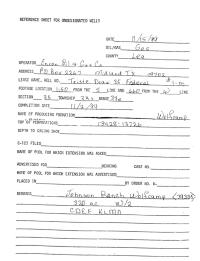 REFERENCE SHEET FOR UNDESIGNATED WELLS
DATE 11/15/99
OIL/GAS Gas
COUNTY Lea
OPERATOR Enron Oil & Gas Co
ADDRESS P O Box 2267 Midland TX 79702
LEASE NAME, WELL NO. 35 Federal
FOOTAGE LOCATION FROM THE S LINE AND 660 FROM THE W LINE
SECTION 35 TOWNSHIP 24s RANGE 33e
COMPLETION DATE 11/2/99
NAME OF PRODUCING FORMATION Wolfcamp
TOP OF PERFORATIONS 13628-13726
DEPTH TO CASING SHOE
C-123 FILED
NAME OF POOL FOR WHICH EXTENSION WAS ASKED
ADVERTISED FOR HEARING CASE NO.
NAME OF POOL FOR WHICH EXTENSION WAS ADVERTISED
PLACED IN BY ORDER NO. R-
Johnson Ranch Wolfcamp
320 ac W/2
CDEF KLMN